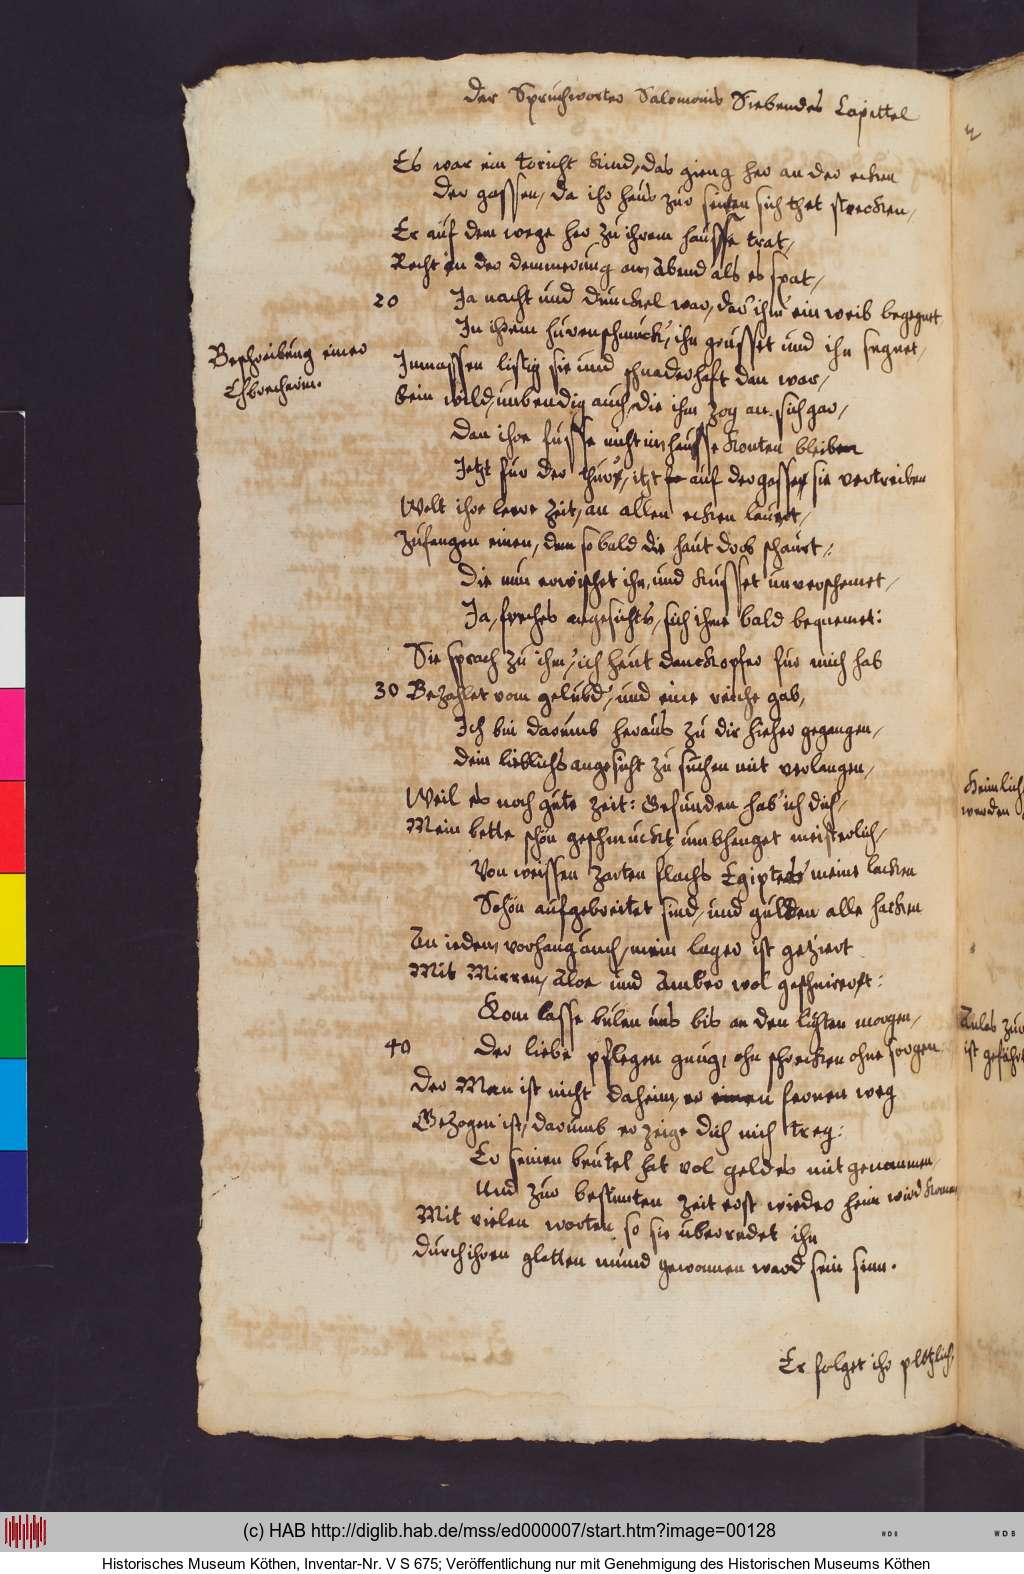 Der Spruchworter Salomonis Siebendes Capittel
Es war ein toricht Kind, das gieng her an der ecken
Der gassen, da ihr haus zur seiten sich thet strecken,
Er auf dem wege her zu ihrem hausse trat,
Recht in der demmerung am Abend als es spat,
20 Ja nacht und dunckel war, dar ihm ein weib begegnet
In ihrem hurenschmuck, ihn grusset und ihn segnet,
Beschreibung einer
Ehbrecherin.
Inmassen listig sie und schnaderhaft dan war,
bein wild, unbendig auch, die ihm zog an sich gar,
Dan ihre fusse nicht im hausse konten bleiben
Jetzt fur der thur, itzt auf der gassen sie vertreiben
Wolt ihre leere zeit, an allen ecken laurt,
Zufangen einen, dem so bald die haut drob schaurt,:
Die nun erwischet ihn, und kusset unverschemet,
Ja, freches angesichts, sich ihme bald bequemet:
Sie sprach zu ihm, ich heut danckopfer fur mich hab
30 Bezahlet vom gelubd, und eine reiche gab,
Ich bin darumb heraus zu dir hieher gegangen,
Dein lieblichs angesicht zu suchen mit verlangen,
Weil es noch gute zeit: Gefunden hab ich dich,
Mein bette schön geschmuckt, umbhenget meisterlich,
Von weissen zarten flachs Egiptes meine lacken
Schön aufgebreitet sind, und gulden alle hacken
An iedem vorhang auch, mein lager ist geziert
Mit Mirren, Aloe und Amber wol geschmirt:
Kom lasse bulen uns bis an den lichten morgen,
40 Der liebe pflegen gnug, ohn schrecken ohne sorgen
Der Man ist nicht daheim, er einen fernen weg
Gezogen ist, darumb er zeige dich nich treg:
Er seinen beutel hat vol geldes mit genommen,
Und zur bestimten zeit erst wieder heim wird komen
Mit vielen worten so sie uberredet ihn
Durch ihren glatten mund gewonnen ward sein sinn.
Er folget ihr plötzlich,
Heimlich
werden
ist gefährt
(c) HAB http://diglib.hab.de/mss/ed000007/start.htm?image=00128
WDB
WDB
Historisches Museum Köthen, Inventar-Nr. V S 675; Veröffentlichung nur mit Genehmigung des Historischen Museums Köthen